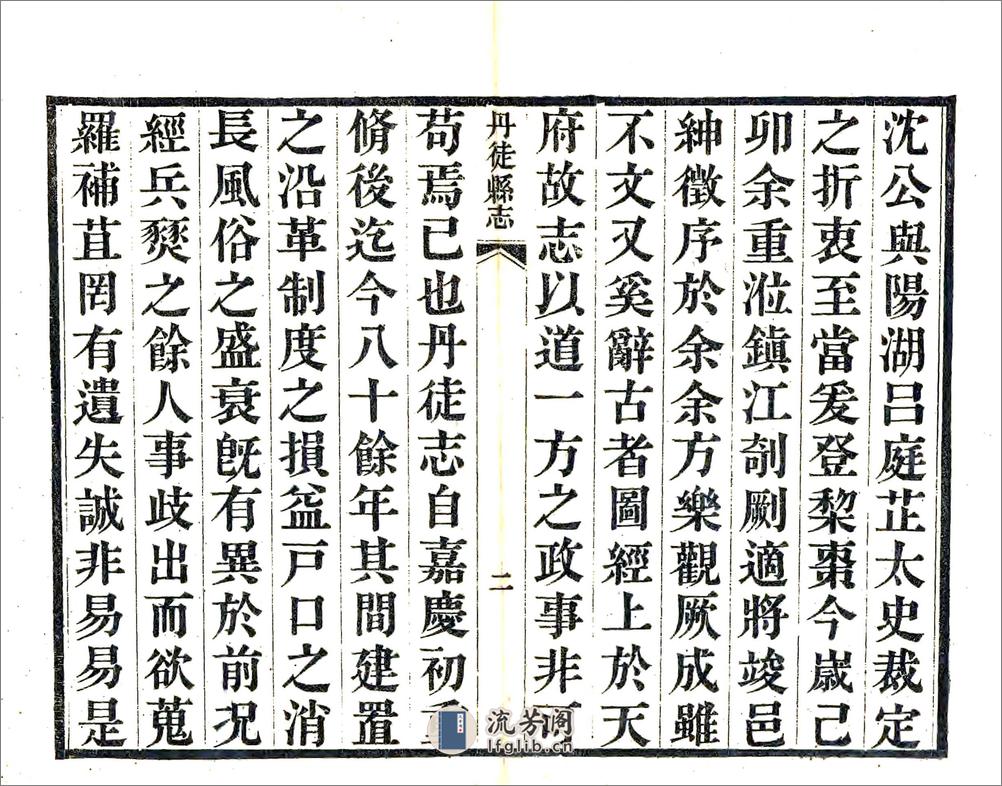 沈公與陽湖呂庭芷太史裁定
之折衷至當爰登棃棗今歲己
卯余重涖鎮江剞劂適將竣邑
紳徵序於余余方樂觀厥成雖
不文又奚辭古者圖經上於天
府故志以道一方之政事非
丹徒縣志
二
苟焉已也丹徒志自嘉慶初
脩後迄今八十餘年其間建置
之沿革制度之損益戶口之消
長風俗之盛衰旣有異於前况
經兵燹之餘人事歧出而欲蒐
羅補苴罔有遺失誠非易易是
流芳阁
lfglib.cn